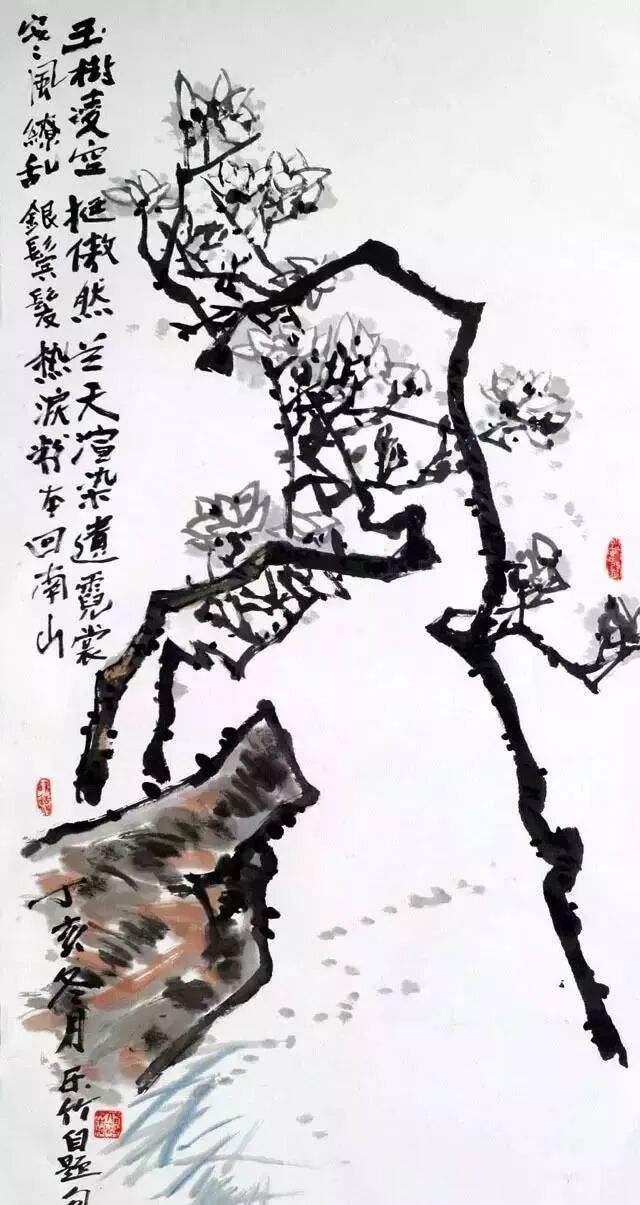 玉樹凌空挺傲然兰天渲染遺霓裳
寒風繚乱銀鬓髮热淚凝本回南山
丁亥冬月乐竹自題句